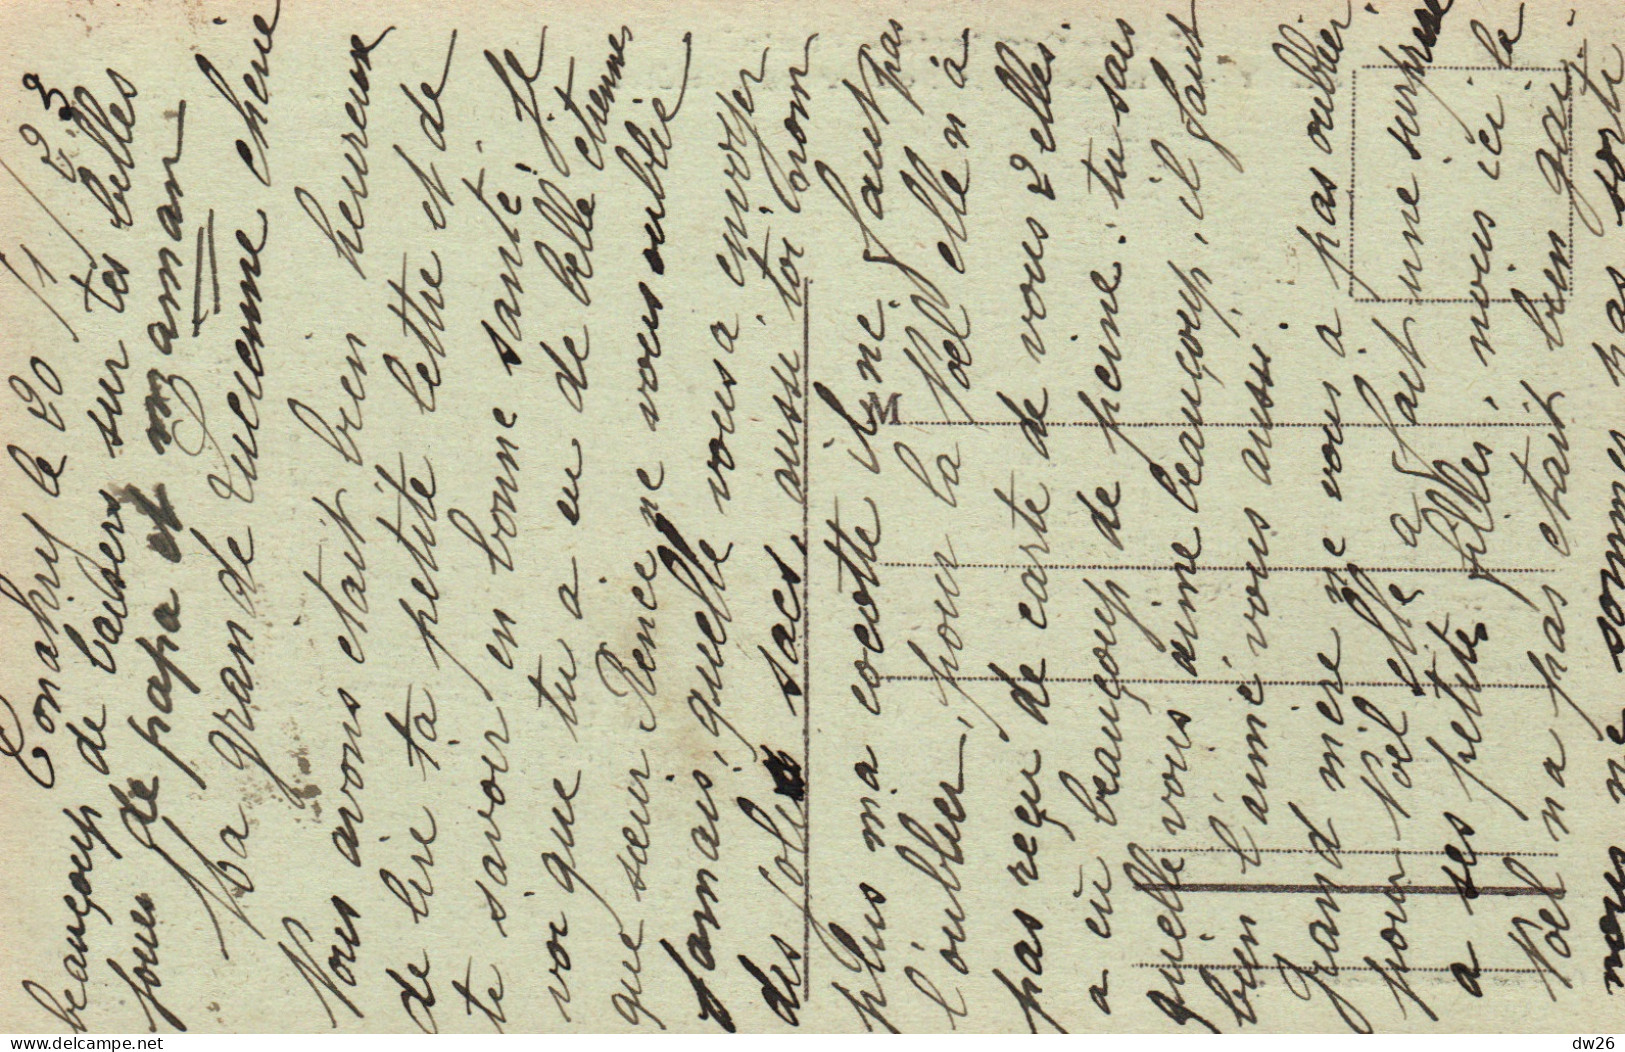 Conahry le 20/1/23
beaucoup de baisers sur tes belles
joues de papa et maman
Ma grande Lucienne cherie
Nous avons etait bien heureux
de lire ta petite lettre et de
te savoir en bonne santé. Je
voi que tu a eu de belle etrennes
que sœur Rence ne vous oublie
jamais, quelle vous a envoyer
des jolies sacs, aussi toi non
plus ma cocotte il ne faut pas
l'oublier, pour la Noel elle n'a
pas reçu de carte de vous 2 elles
a eu beauçoup de peine. tu sais
quelle vous aime beauçoup, il faut
bien l'aimé vous aussi.
Grand mère ne vous a pas oublier
pour Noël elle a fait une surprise
a ses petites filles, nous ici la
Noel n'a pas etait bien gai.
nous ne sommes pas sorti
M
delcampe.net
dw26